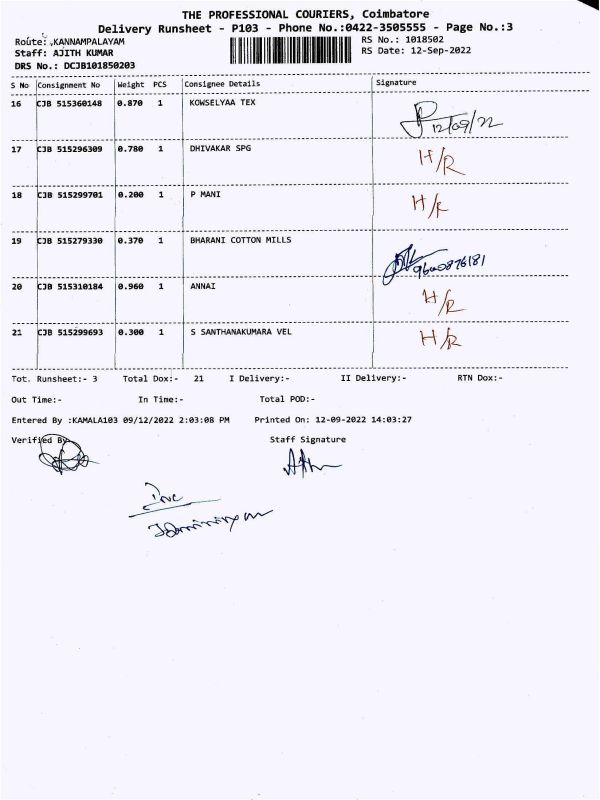 THE PROFESSIONAL COURIERS, Coimbatore
Delivery Runsheet - P103 - Phone No.:0422-3505555 - Page No.:3
Route: KANNAMPALAYAM RS No.: 1018502
Staff: AJITH KUMAR RS Date: 12-Sep-2022
DRS No.: DCJB101850203
S No Consignment No Weight PCS Consignee Details Signature
16 CJB 515360148 0.870 1 KOWSELYAA TEX
12/09/22
17 CJB 515296309 0.780 1 DHIVAKAR SPG H/R
18 CJB 515299701 0.200 1 P MANI H/R
19 CJB 515279330 0.370 1 BHARANI COTTON MILLS
20 CJB 515310184 0.960 1 ANNAI H/R
21 CJB 515299693 0.300 1 S SANTHANAKUMARA VEL H/R
Tot. Runsheet:- 3 Total Dox:- 21 I Delivery:- II Delivery:- RTN Dox:-
Out Time:- In Time:- Total POD:-
Entered By :KAMALA103 09/12/2022 2:03:08 PM Printed On: 12-09-2022 14:03:27
Verified By Staff Signature